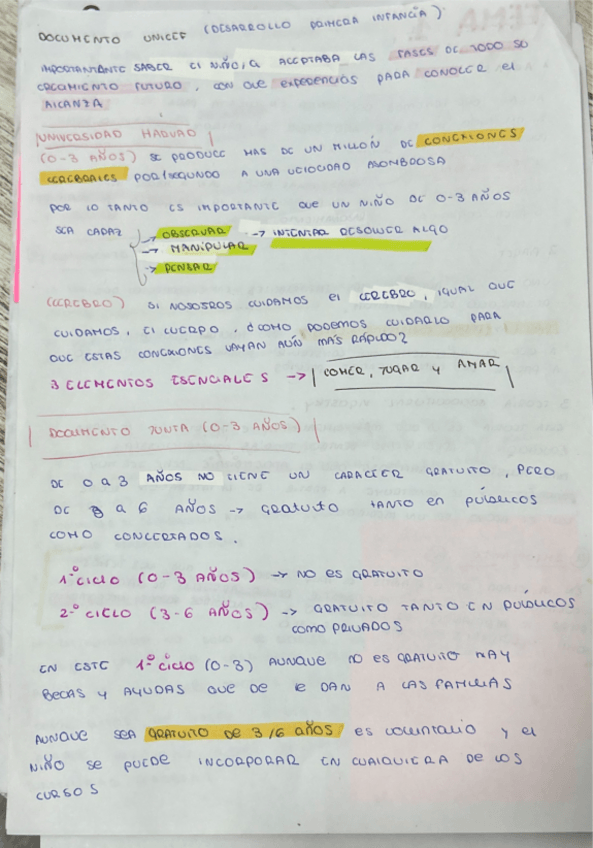 DOCUMENTO UNICEF (DESARROLLO PRIMERA INFANCIA)
IMPORTANTANTE SABER EL NIÑO/A ACEPTABA LAS FASES DE TODO SU
CRECIMIENTO FUTURO, CON QUE EXPERIENCIAS PARA CONOCER EL
ALCANZA
UNIVERSIDAD HARVARD
(0-3 AÑOS) SE PRODUCE MAS DE UN MILLÓN DE CONEXIONES
CEREBRALES POR/SEGUNDO A UNA VELOCIDAD ASOMBROSA
POR LO TANTO ES IMPORTANTE QUE UN NIÑO DE 0-3 AÑOS
SEA CAPAZ → OBSERVAR → INTENTAR RESOLVER ALGO
→ MANIPULAR
→ PENSAR
(CEREBRO) SI NOSOTROS CUIDAMOS EL CEREBRO, IGUAL QUE
CUIDAMOS, EL CUERPO, ¿CÓMO PODEMOS CUIDARLO PARA
QUE ESTAS CONEXIONES VAYAN AÚN MÁS RÁPIDO?
3 ELEMENTOS ESENCIALES → | COMER, JUGAR Y AMAR |
| DOCUMENTO JUNTA (0-3 AÑOS) |
DE 0 A 3 AÑOS NO TIENE UN CARACTER GRATUITO, PERO
DE 3 A 6 AÑOS → GRATUITO TANTO EN PÚBLICOS
COMO CONCERTADOS.
1º CICLO (0-3 AÑOS) → NO ES GRATUITO
2º CICLO (3-6 AÑOS) → GRATUITO TANTO EN PÚBLICOS
COMO PRIVADOS
EN ESTE 1º CICLO (0-3) AUNQUE NO ES GRATUITO HAY
BECAS Y AYUDAS QUE DE LE DAN A LAS FAMILIAS
AUNQUE SEA GRATUITO DE 3/6 AÑOS ES VOLUNTARIO Y EL
NIÑO SE PUEDE INCORPORAR EN CUALQUIERA DE LOS
CURSOS